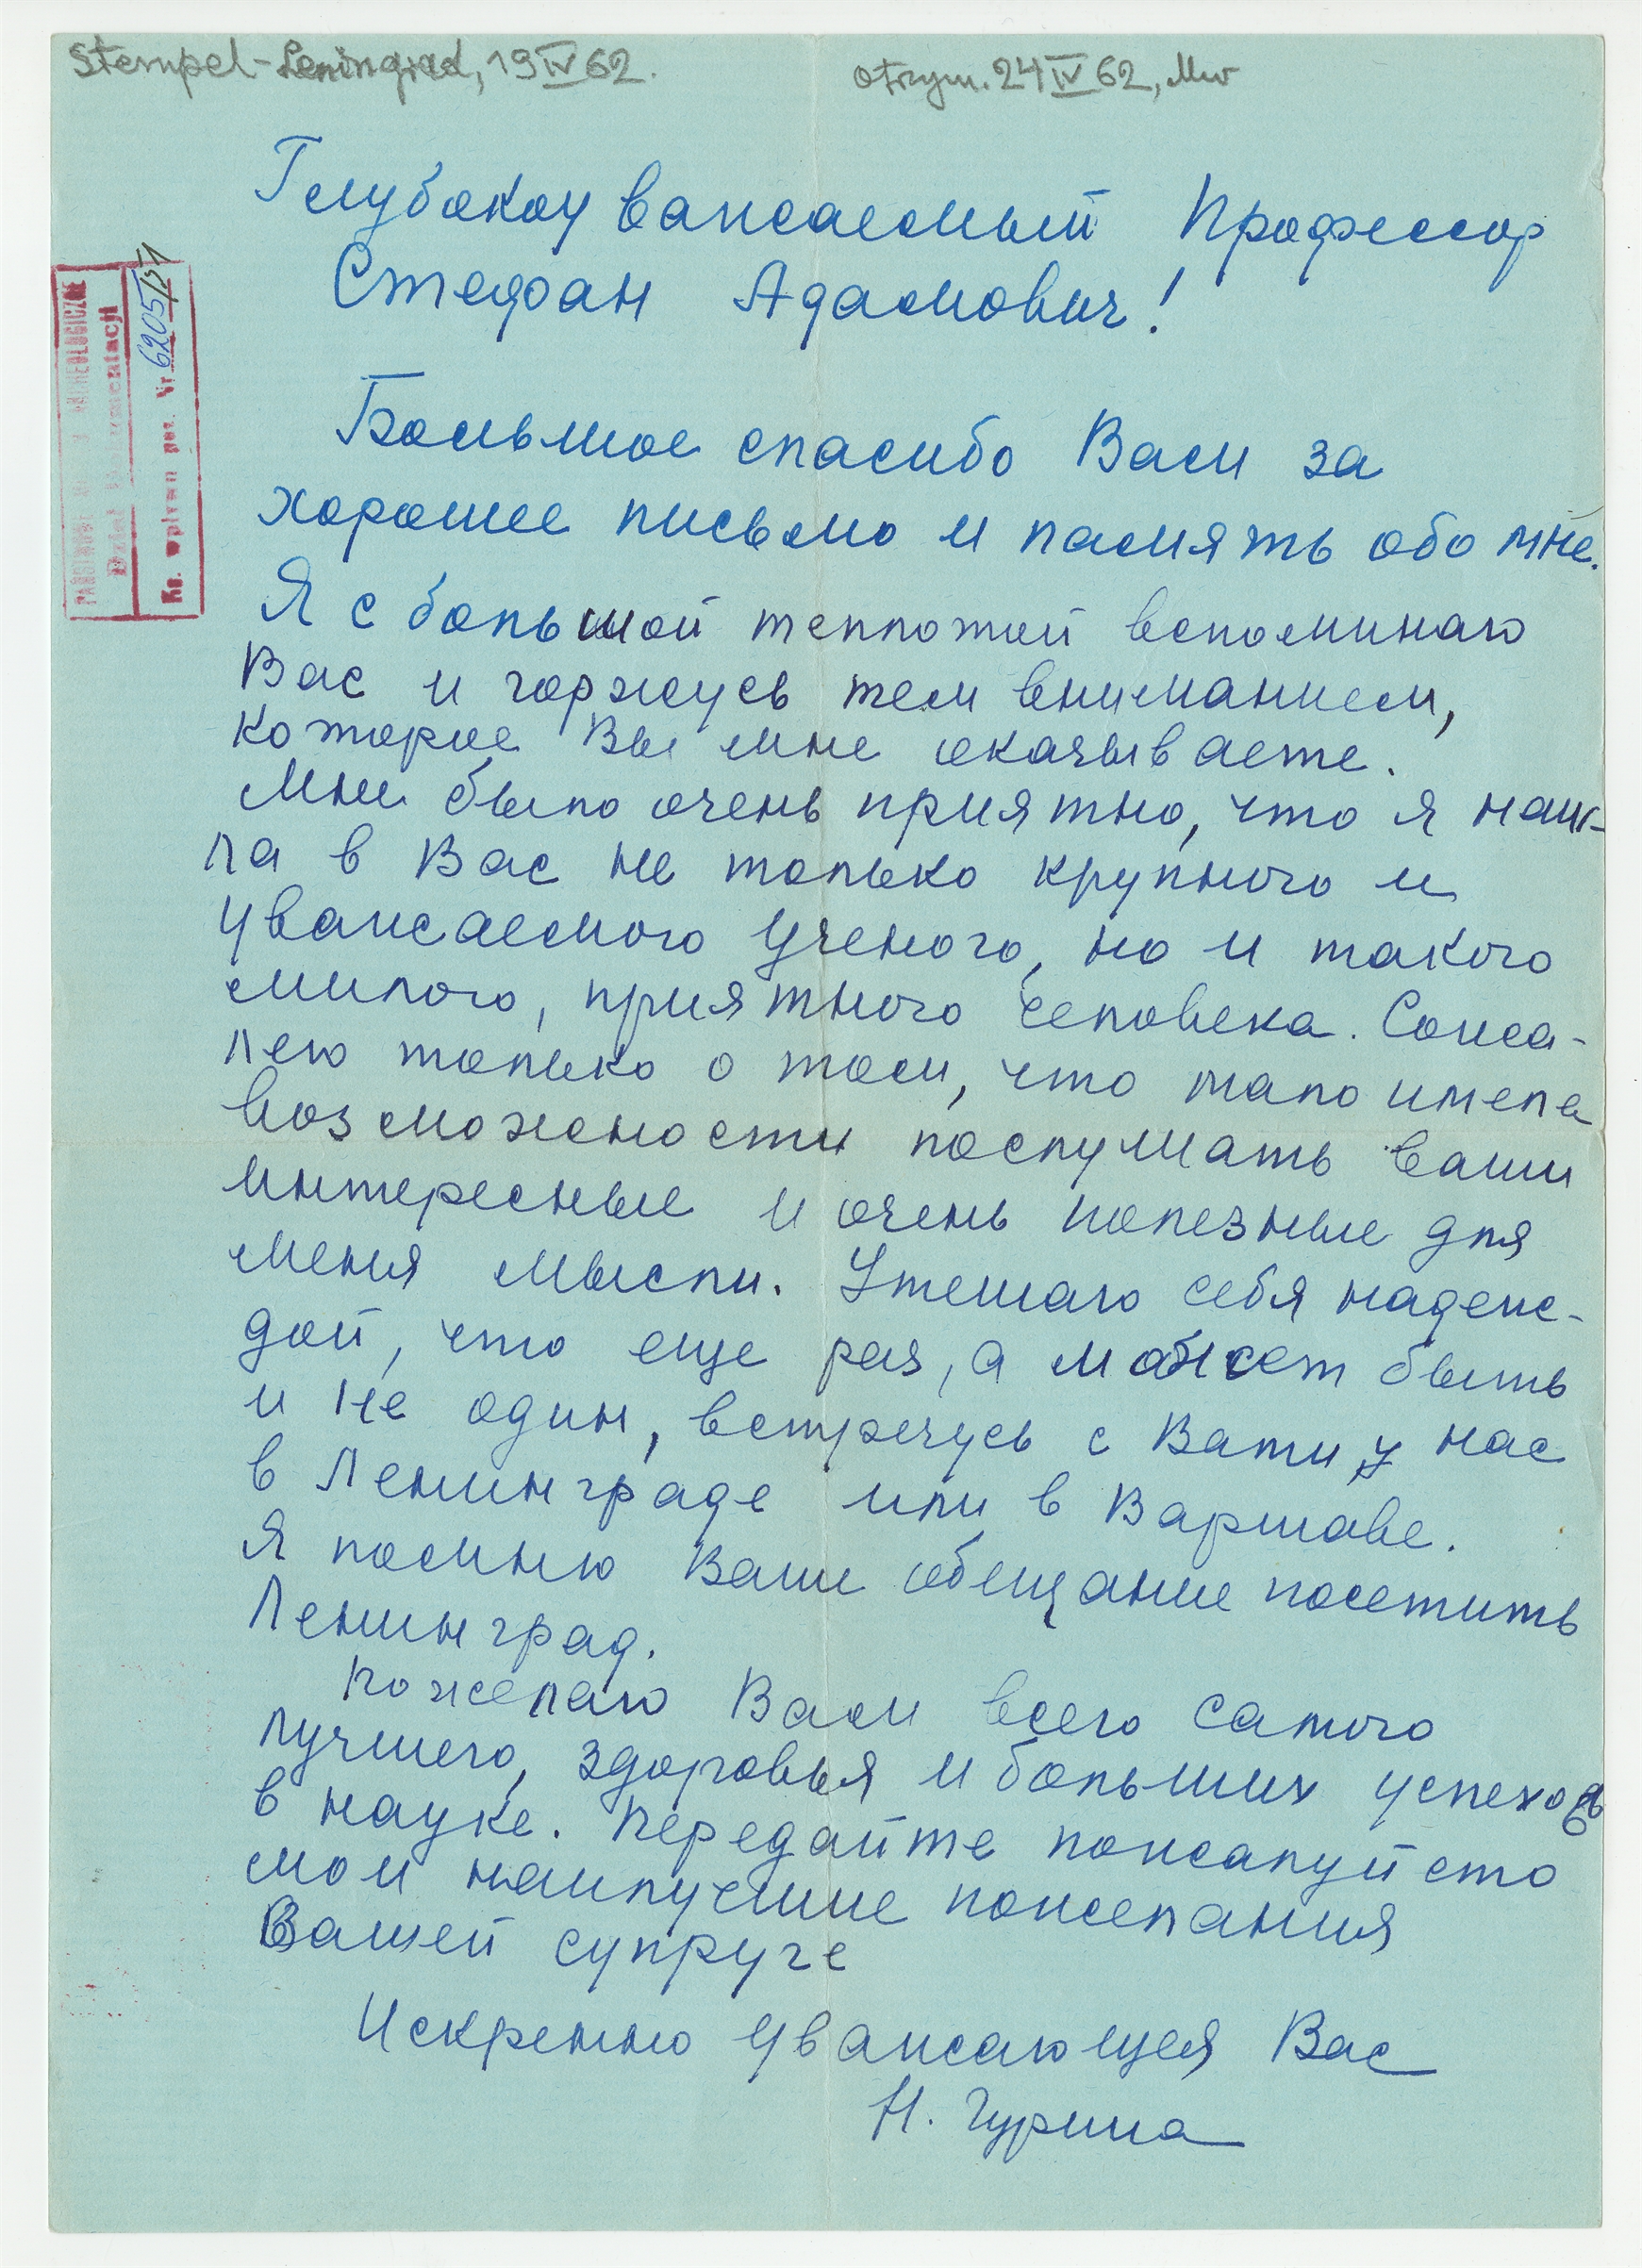 Stempel-Leningrad, 19 IV 62.
otrzym. 24 IV 62, Mw
PAŃSTWOWE MUZEUM ARCHEOLOGICZNE
Dział Dokumentacji
Ks. wpływu poz. Nr 6205/21
Глубокоуважаемый Профессор
Стефан Адамович!
Большое спасибо Вам за
хорошее письмо и память обо мне.
Я с большой теплотой вспоминаю
Вас и горжусь тем вниманием,
которое Вы мне оказываете.
Мне было очень приятно, что я наш-
ла в Вас не только крупного и
уважаемого ученого, но и такого
милого, приятного человека. Сожа-
лею только о том, что мало имела
возможности послушать ваши
интересные и очень полезные для
меня мысли. Утешаю себя надеж-
дой, что еще раз, а может быть
и не один, встречусь с Вами у нас
в Ленинграде или в Варшаве.
Я помню Ваше обещание посетить
Ленинград.
Пожелаю Вам всего самого
лучшего, здоровья и больших успехов
в науке. Передайте пожалуйсто
мои наилучшие пожелания
Вашей супруге
Искренно уважающая Вас
Н. Гурина